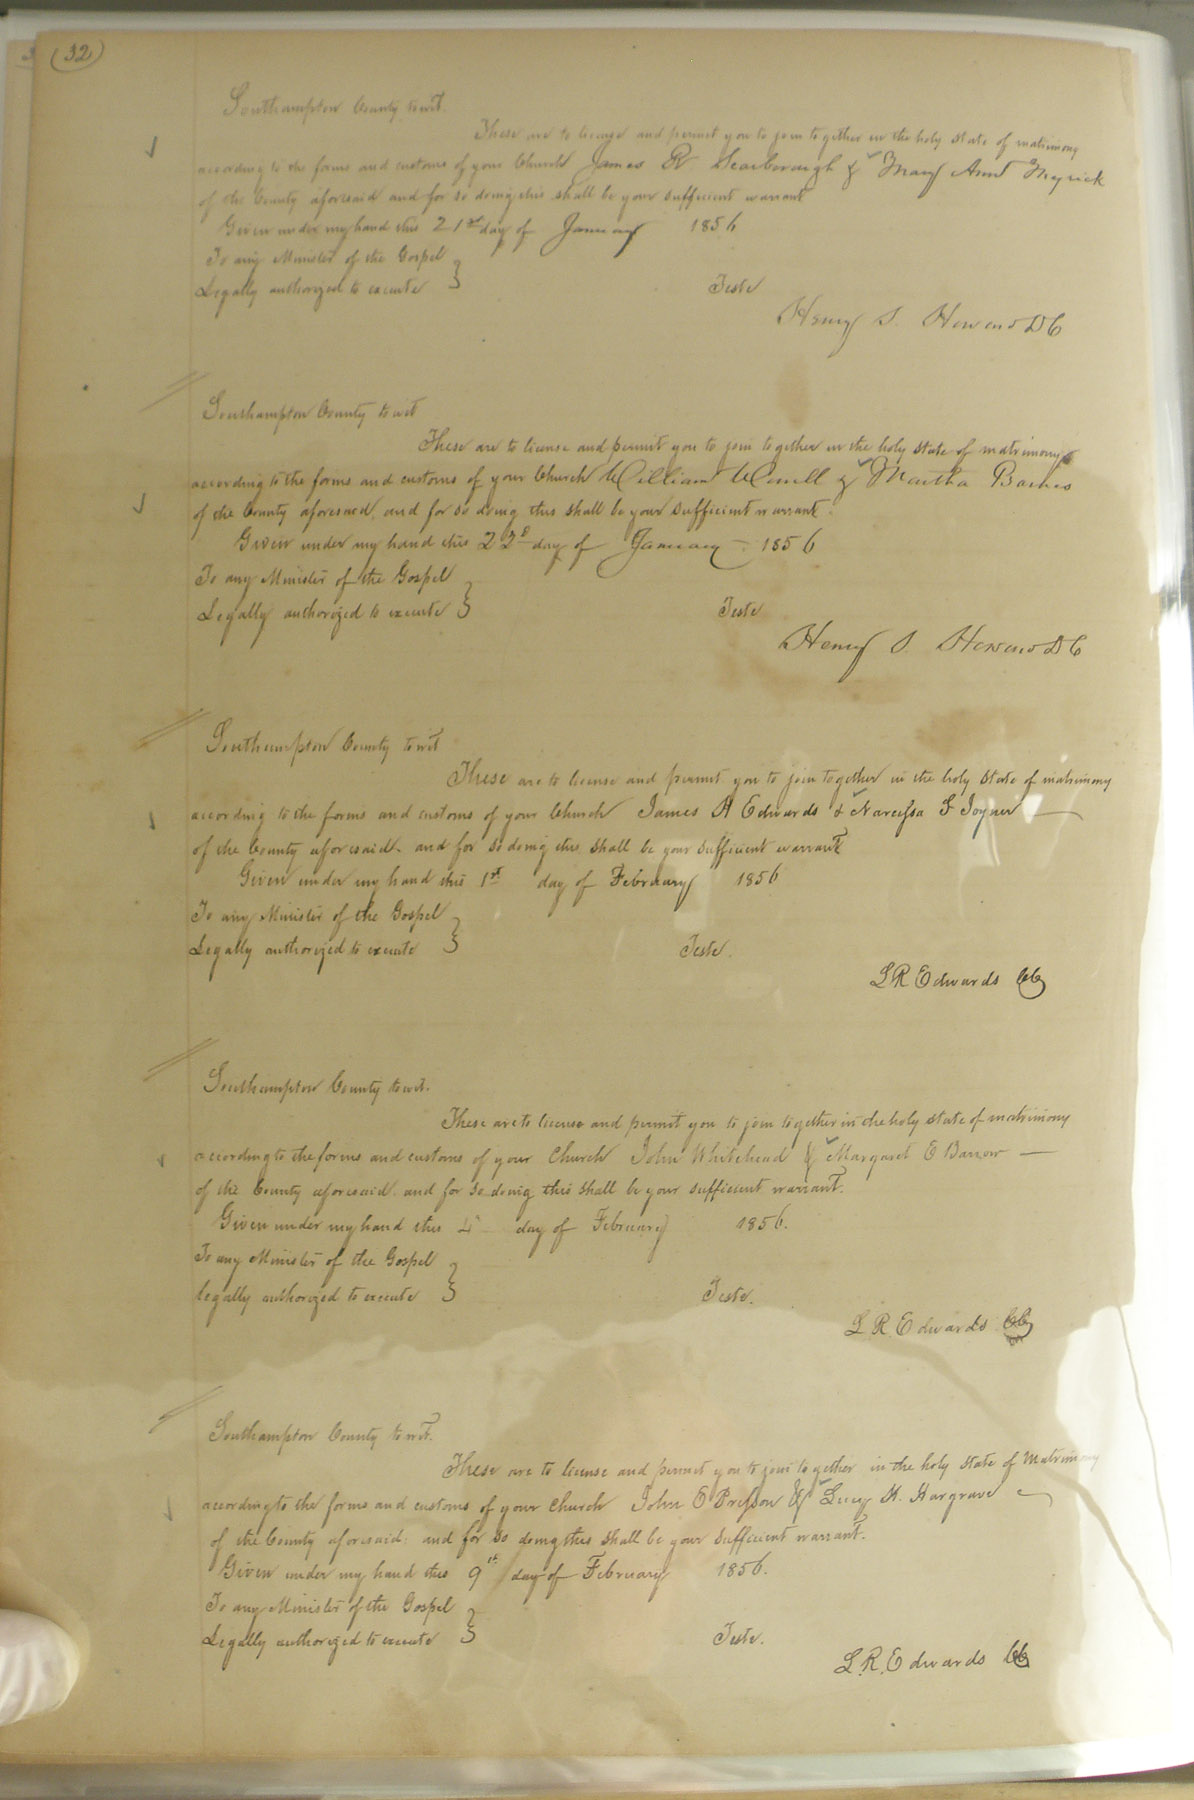 (32)
Southampton County to wit.
These are to license and permit you to join together in the holy state of matrimony
according to the forms and customs of your Church James R Scarborough & Mary Ann Myrick
of the County aforesaid and for so doing this shall be your sufficient warrant
Given under my hand this 21st day of January 1856
To any Minister of the Gospel
Legally authorized to execute } Teste
Henry S. Howard DC
Southampton County to wit
These are to license and permit you to join together in the holy state of matrimony
according to the forms and customs of your Church William & Martha Barnes
of the County aforesaid, and for so doing this shall be your sufficient warrant.
Given under my hand this 22d day of January 1856
To any Minister of the Gospel
Legally authorized to execute } Teste
Henry S. Howard DC
Southampton County to wit
These are to license and permit you to join together in the holy state of matrimony
according to the forms and customs of your Church James H Edwards & Narcissa F Joyner
of the County aforesaid. and for so doing this shall be your sufficient warrant
Given under my hand this 1st day of February 1856
To any Minister of the Gospel
Legally authorized to execute } Teste.
L R Edwards CC
Southampton County to wit.
These are to license and permit you to join together in the holy state of matrimony
according to the forms and customs of your Church John Whitehead & Margaret E Barrow
of the County aforesaid. and for so doing this shall be your sufficient warrant.
Given under my hand this 4 day of February 1856.
To any Minister of the Gospel
legally authorized to execute } Teste.
L. R. Edwards CC
Southampton County to wit.
These are to license and permit you to join together in the holy state of Matrimony
according to the forms and customs of your Church John E Presson & Lucy H. Hargrave
of the County aforesaid: and for so doing this shall be your sufficient warrant.
Given under my hand this 9th day of February 1856.
To any Minister of the Gospel
Legally authorized to execute } Teste.
L. R. Edwards CC